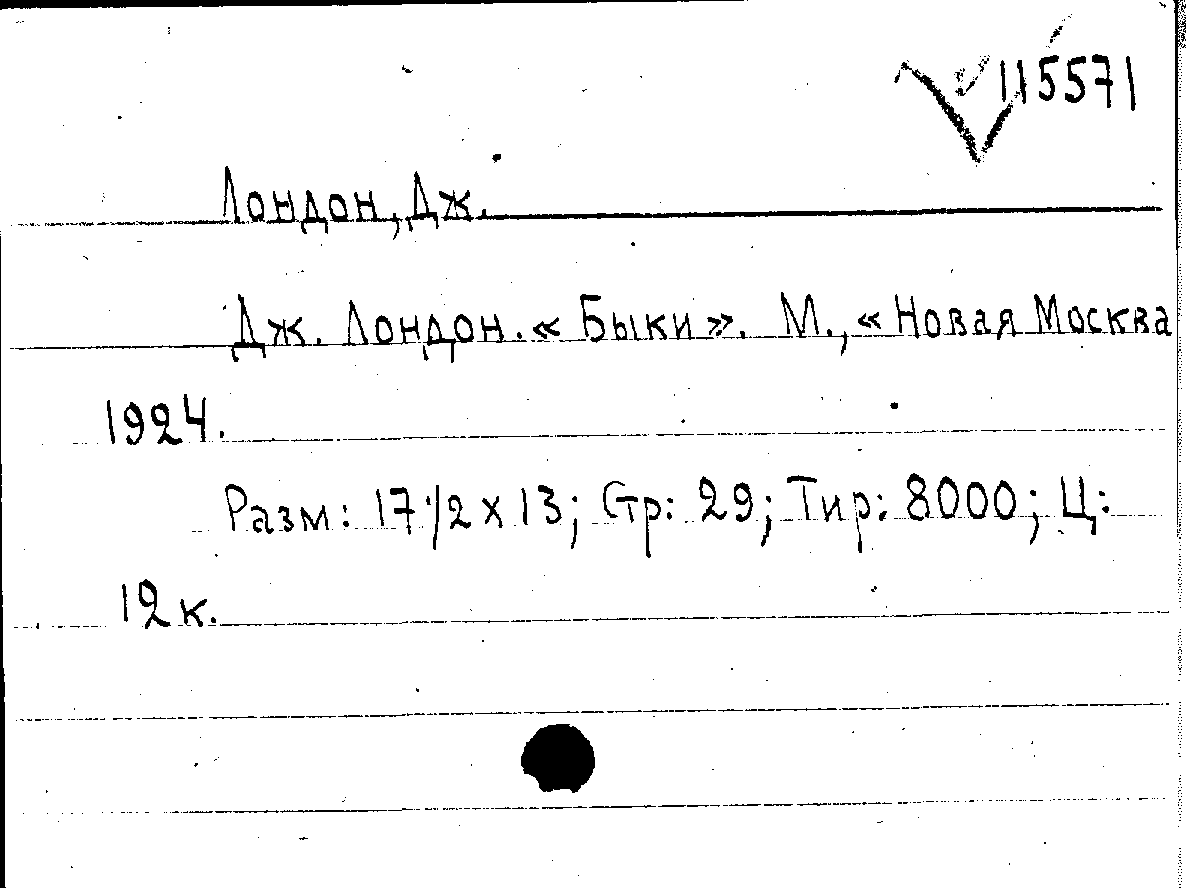 115571
Лондон, Дж.
Дж. Лондон. « Быки ». М., « Новая Москва
1924.
Разм: 17 1/2 x 13; Стр: 29; Тир: 8000; Ц:
12 к.